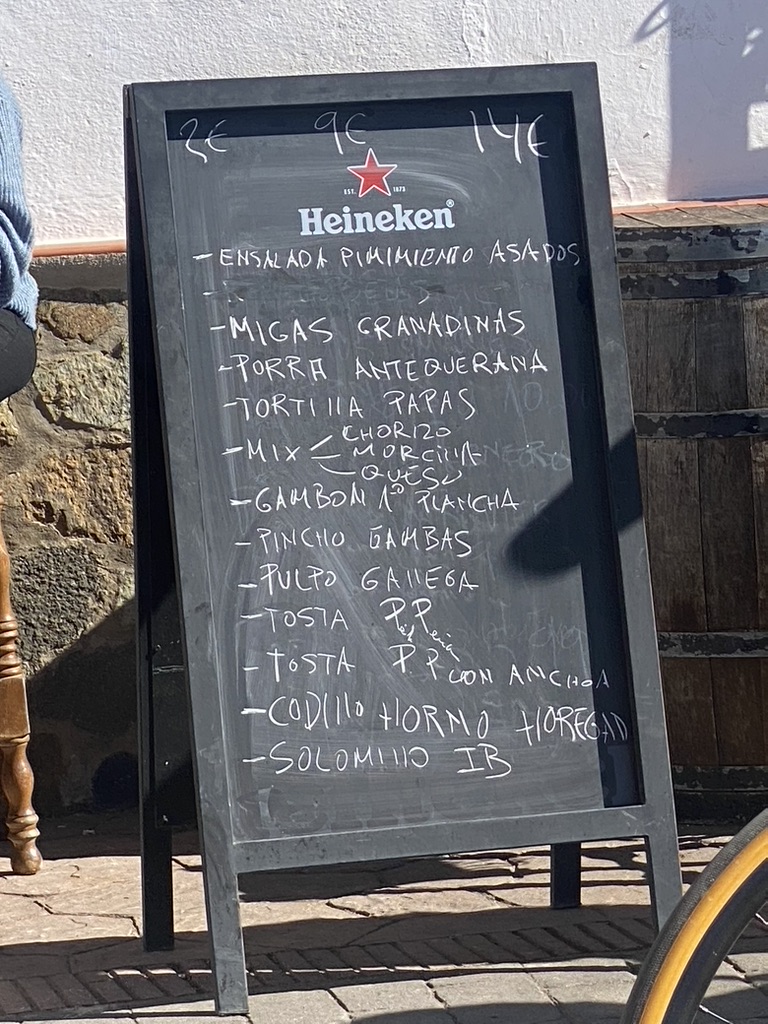 2€ 9€ 14€
EST. 1873
Heineken®
- ENSALADA PIMIMIENTO ASADOS
- MIGAS GRANADINAS
- PORRA ANTEQUERANA
- TORTILLA PAPAS
CHORIZO
- MIX MORCILLA
QUESO
- GAMBON 1º PLANCHA
- PINCHO GAMBAS
- PULPO GALLEGA
- TOSTA P.P.
- TOSTA P.P CON ANCHOA
- CODILLO HORNO
- SOLOMILLO IB